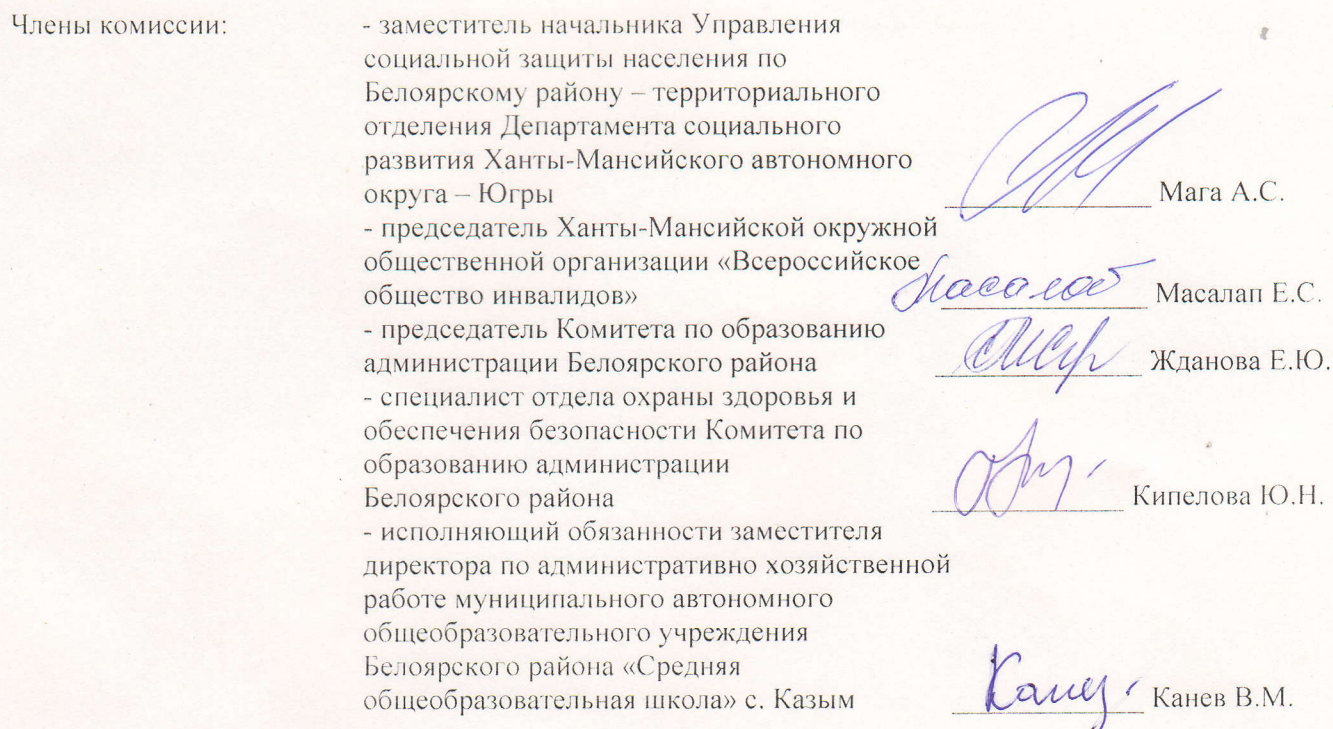 Члены комиссии: - заместитель начальника Управления
социальной защиты населения по
Белоярскому району – территориального
отделения Департамента социального
развития Ханты-Мансийского автономного
округа – Югры Мага А.С.
- председатель Ханты-Мансийской окружной
общественной организации «Всероссийское
общество инвалидов» Масалап Е.С.
- председатель Комитета по образованию
администрации Белоярского района Жданова Е.Ю.
- специалист отдела охраны здоровья и
обеспечения безопасности Комитета по
образованию администрации
Белоярского района Кипелова Ю.Н.
- исполняющий обязанности заместителя
директора по административно хозяйственной
работе муниципального автономного
общеобразовательного учреждения
Белоярского района «Средняя
общеобразовательная школа» с. Казым Канев В.М.